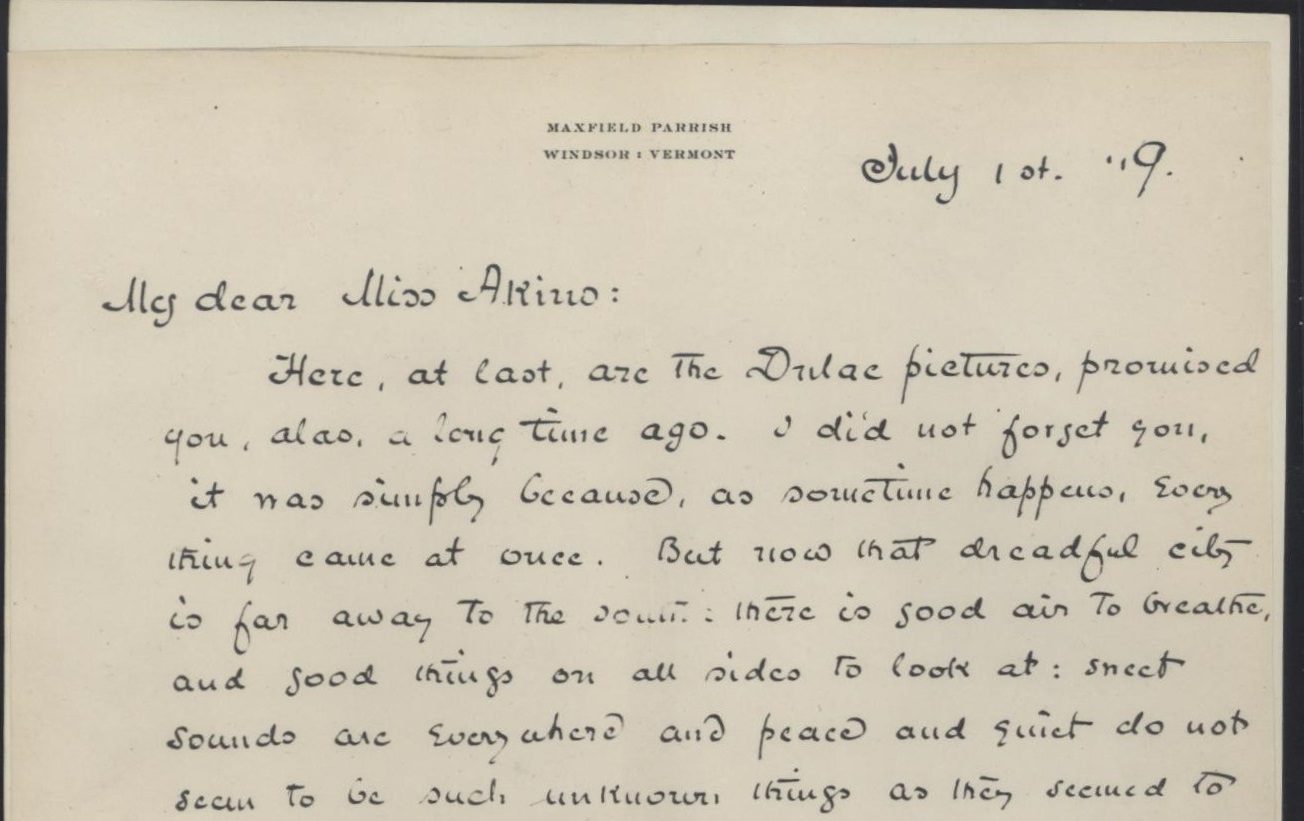 MAXFIELD PARRISH
WINDSOR : VERMONT
July 1st. '19.
My dear Miss Akins:
Here, at last, are the Dulac pictures, promised
you, alas, a long time ago. I did not forget you,
it was simply because, as sometime happens, every
thing came at once. But now that dreadful city
is far away to the south: there is good air to breathe,
and good things on all sides to look at: sweet
sounds are everywhere and peace and quiet do not
seem to be such unknown things as they seemed to